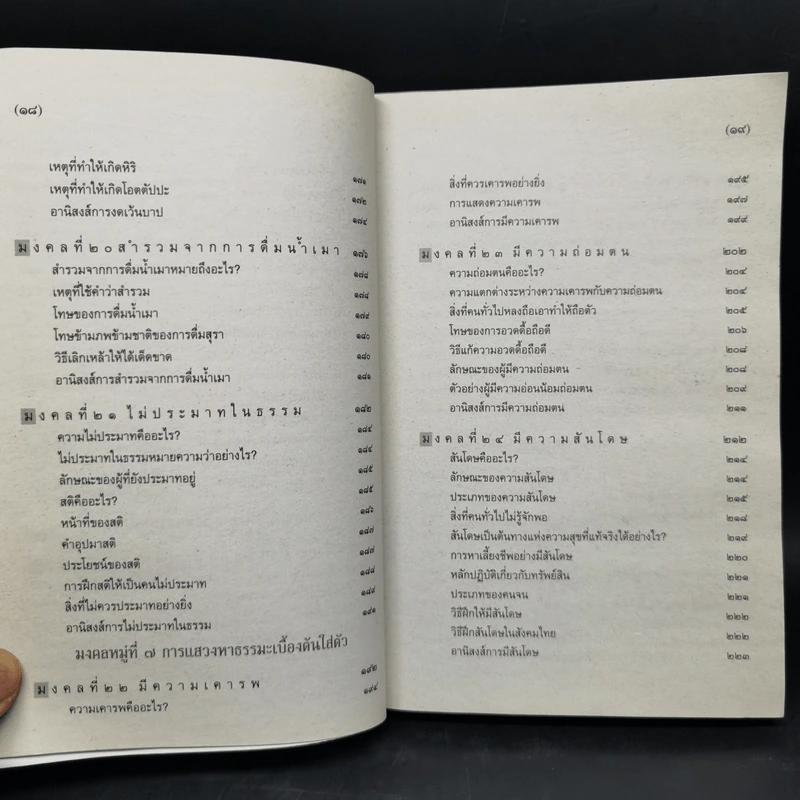 (๑๘)
เหตุที่ทำให้เกิดหิริ ๑๗๑
เหตุที่ทำให้เกิดโอตตัปปะ ๑๗๒
อานิสงส์การงดเว้นบาป ๑๗๔
มงคลที่ ๒๐ สำรวมจากการดื่มน้ำเมา ๑๗๖
สำรวมจากการดื่มน้ำเมาหมายถึงอะไร? ๑๗๘
เหตุที่ใช้คำว่าสำรวม ๑๗๘
โทษของการดื่มน้ำเมา ๑๗๙
โทษข้ามภพข้ามชาติของการดื่มสุรา ๑๘๐
วิธีเลิกเหล้าให้ได้เด็ดขาด ๑๘๐
อานิสงส์การสำรวมจากการดื่มน้ำเมา ๑๘๑
มงคลที่ ๒๑ ไม่ประมาทในธรรม ๑๘๒
ความไม่ประมาทคืออะไร? ๑๘๔
ไม่ประมาทในธรรมหมายความว่าอย่างไร? ๑๘๔
ลักษณะของผู้ที่ยังประมาทอยู่ ๑๘๕
สติคืออะไร? ๑๘๕
หน้าที่ของสติ ๑๘๖
คำอุปมาสติ ๑๘๗
ประโยชน์ของสติ ๑๘๗
การฝึกสติให้เป็นคนไม่ประมาท ๑๘๘
สิ่งที่ไม่ควรประมาทอย่างยิ่ง ๑๘๙
อานิสงส์การไม่ประมาทในธรรม ๑๙๑
มงคลหมู่ที่ ๗ การแสวงหาธรรมะเบื้องต้นใส่ตัว
มงคลที่ ๒๒ มีความเคารพ ๑๙๒
ความเคารพคืออะไร? ๑๙๔
(๑๙)
สิ่งที่ควรเคารพอย่างยิ่ง ๑๙๕
การแสดงความเคารพ ๑๙๗
อานิสงส์การมีความเคารพ ๑๙๙
มงคลที่ ๒๓ มีความถ่อมตน ๒๐๒
ความถ่อมตนคืออะไร? ๒๐๔
ความแตกต่างระหว่างความเคารพกับความถ่อมตน ๒๐๔
สิ่งที่คนทั่วไปหลงถือเอาทำให้ถือตัว ๒๐๕
โทษของการอวดดื้อถือดี ๒๐๖
วิธีแก้ความอวดดื้อถือดี ๒๐๘
ลักษณะของผู้มีความถ่อมตน ๒๐๘
ตัวอย่างผู้มีความอ่อนน้อมถ่อมตน ๒๐๙
อานิสงส์การมีความถ่อมตน ๒๑๑
มงคลที่ ๒๔ มีความสันโดษ ๒๑๒
สันโดษคืออะไร? ๒๑๔
ลักษณะของความสันโดษ ๒๑๔
ประเภทของความสันโดษ ๒๑๕
สิ่งที่คนทั่วไปไม่รู้จักพอ ๒๑๘
สันโดษเป็นต้นทางแห่งความสุขที่แท้จริงได้อย่างไร? ๒๑๙
การหาเลี้ยงชีพอย่างมีสันโดษ ๒๒๐
หลักปฏิบัติเกี่ยวกับทรัพย์สิน ๒๒๑
ประเภทของคนจน ๒๒๑
วิธีฝึกให้มีสันโดษ ๒๒๒
วิธีฝึกสันโดษในสังคมไทย ๒๒๒
อานิสงส์การมีสันโดษ ๒๒๓